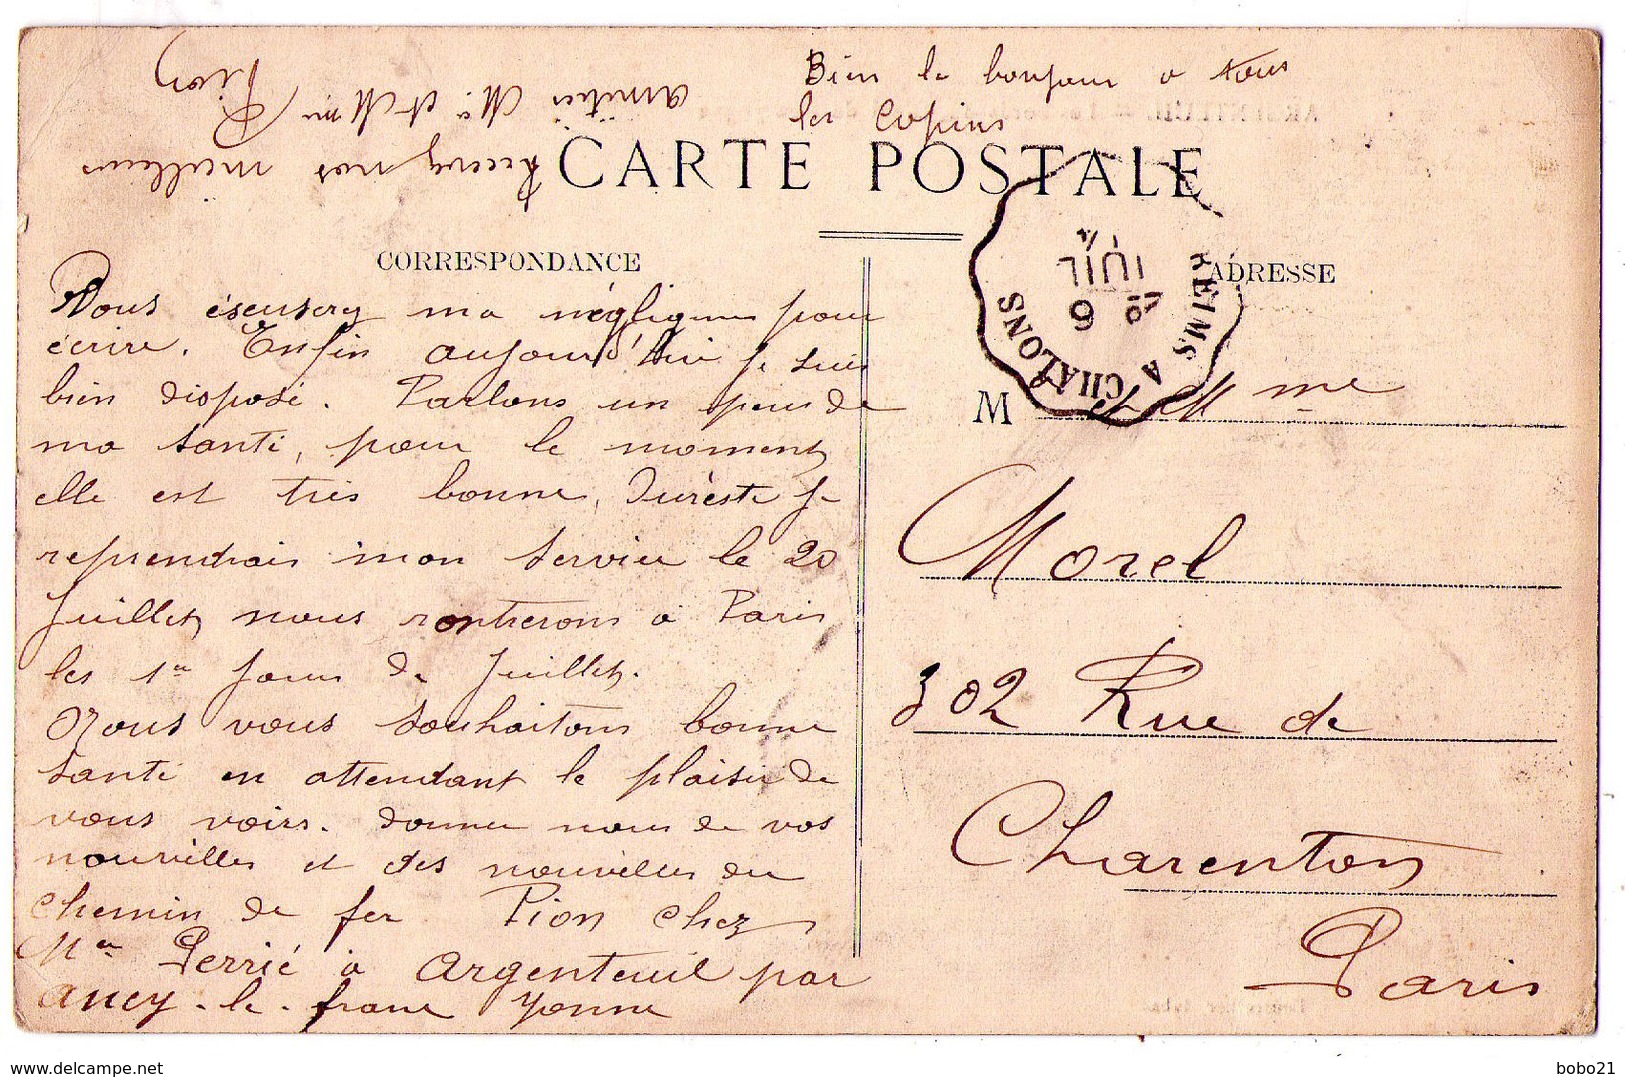 Bien le bonjour a tous
les Copins
CARTE POSTALE
CORRESPONDANCE
ADRESSE
Vous éscuserez ma négligence pour
écrire. Enfin aujourd'hui je suis
bien disposé. Parlons un peu de
ma santé, pour le moment
elle est très bonne, Dureste je
reprendrais mon service le 20
Juillet nous rontrerons a Paris
les 1er Jours de Juillet.
Nous vous souhaitons bonne
santé en attendant le plaisir de
vous voirs. donner nous de vos
nouvelles et des nouvelles du
chemin de fer Pion chez
Perrié a Argenteuil par
ancy-le-franc Yonne
Recevez nos meilleurs
amitiés Mr et Mme
Pion
REIMS A CHALONS
6
JUIL
M et Mme
Morel
302 Rue de
Charenton
Paris
bobo21